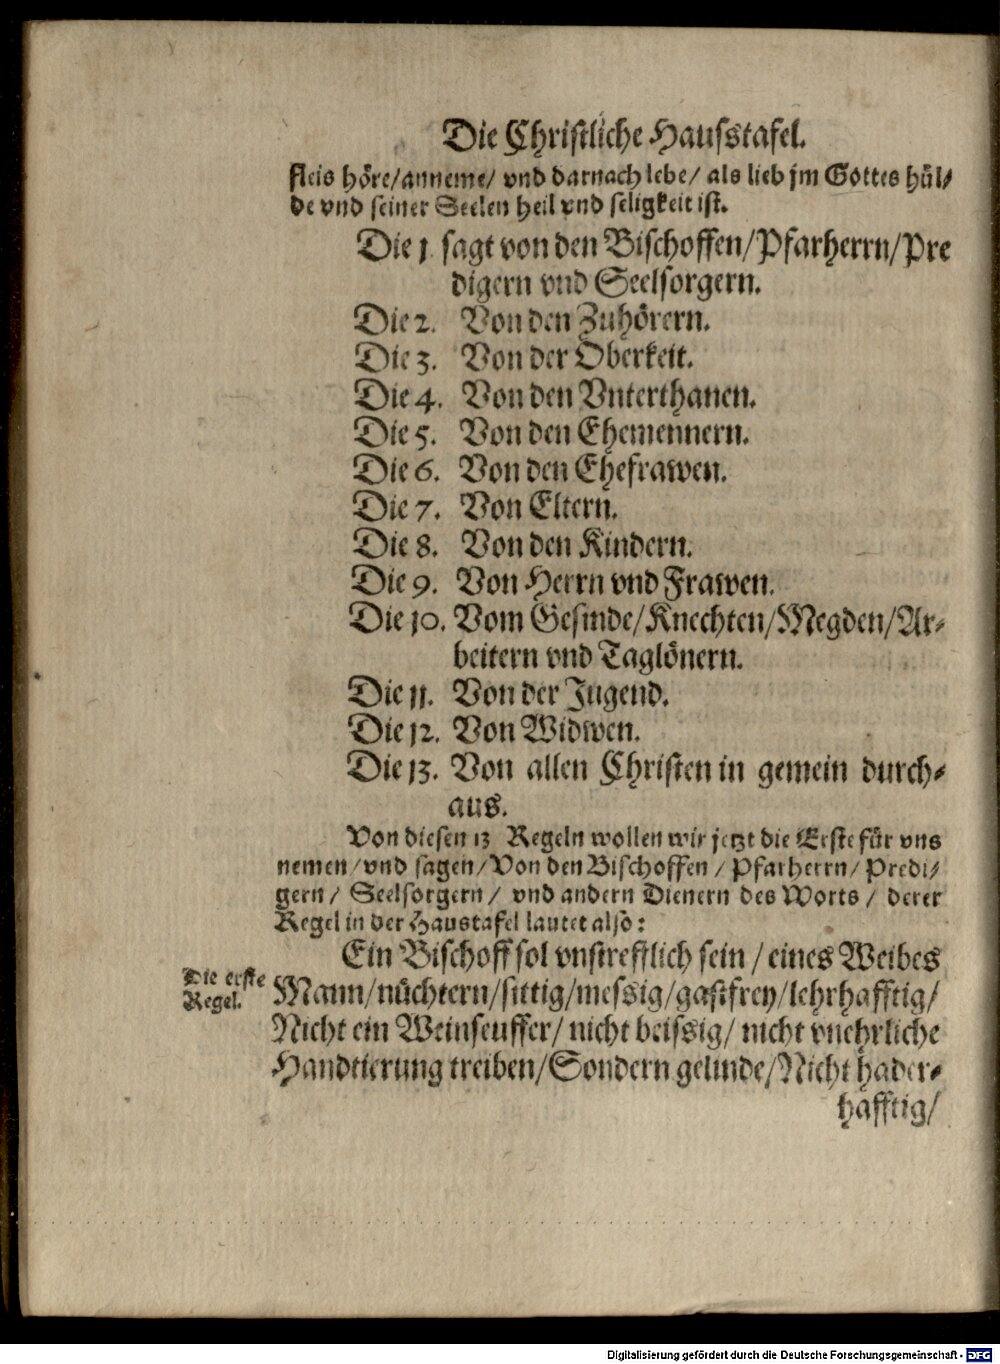 Die Christliche Haußtafel.
fleis höre/anneme/ vnd darnach lebe/ als lieb jm Gottes hül/
de vnd seiner Seelen heil vnd seligkeit ist.
Die 1 sagt von den Bischoffen/Pfarherrn/Pre
digern vnd Seelsorgern.
Die 2. Von den Zuhörern.
Die 3. Von der Oberkeit.
Die 4. Von den Vnterthanen.
Die 5. Von den Ehemennern.
Die 6. Von den Ehefrawen.
Die 7. Von Eltern.
Die 8. Von den Kindern.
Die 9. Von Herrn vnd Frawen.
Die 10. Vom Gesinde/Knechten/Megden/Ar-
beitern vnd Taglönern.
Die 11. Von der Jugend.
Die 12. Von Widwen.
Die 13. Von allen Christen in gemein durch-
aus.
Von diesen 13 Regeln wollen wir jetzt die Erste für vns
nemen/vnd sagen/Von den Bischoffen/ Pfarherrn/ Predi/
gern/ Seelsorgern/ vnd andern Dienern des Worts/ derer
Regel in der Haustafel lautet also:
Die erste
Regel.
Ein Bischoff sol vnstrefflich sein/ eines Weibes
Mann/nüchtern/sittig/messig/gastfrey/lehrhafftig/
Nicht ein Weinseuffer/ nicht beissig/ nicht vnehrliche
Handtierung treiben/Sondern gelinde/Nicht hader-
hafftig/
Digitalisierung gefördert durch die Deutsche Forschungsgemeinschaft - DFG